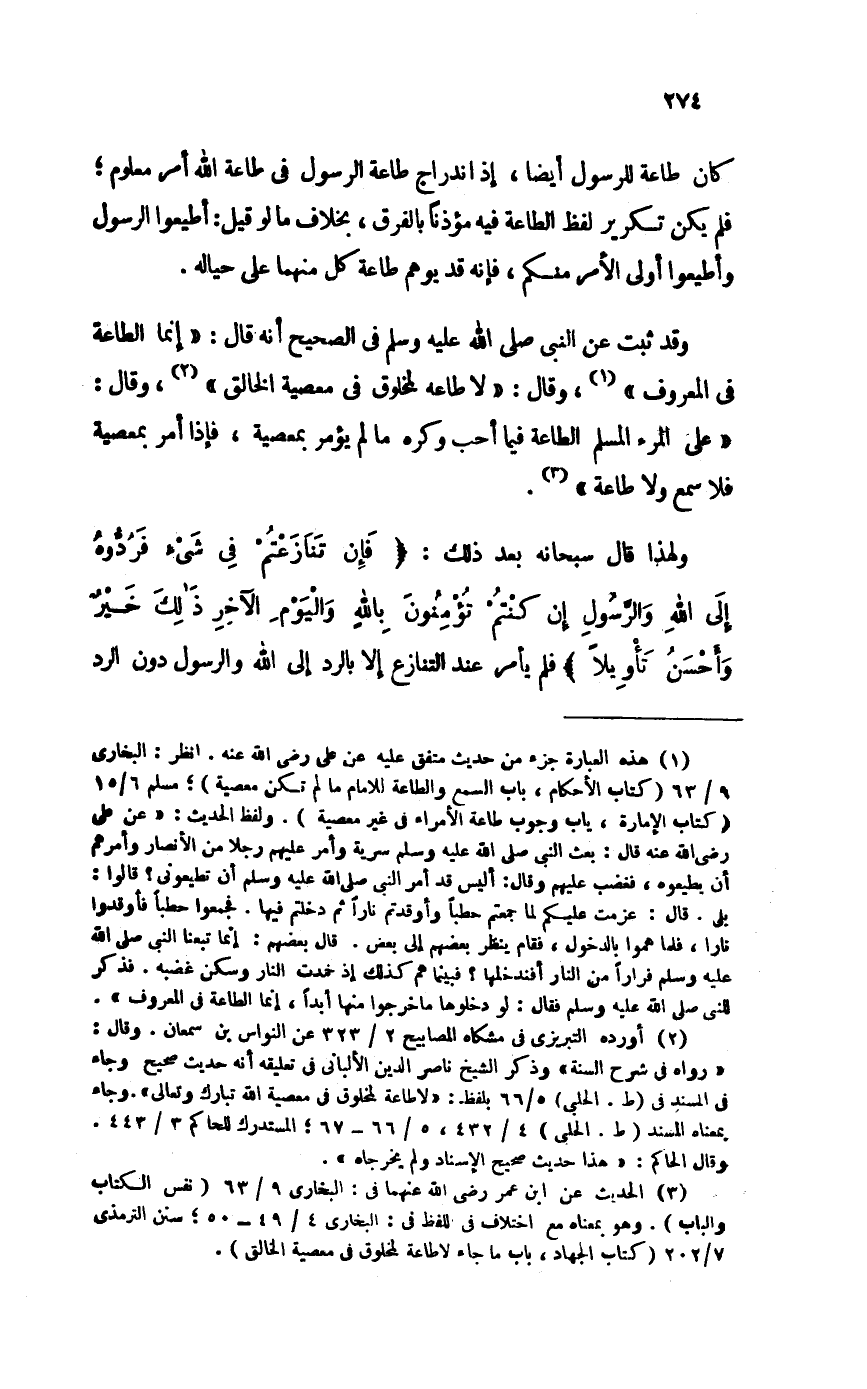 ٢٧٤
كان طاعة للرسول أيضا ، إذ اندراج طاعة الرسول فى طاعة الله أمر معلوم ؛
فلم يكن تكرير لفظ الطاعة فيه مؤذناً بالفرق ، بخلاف ما لو قيل : أطيعوا الرسول
وأطيعوا أولى الأمر منكم ، فإنه قد يوهم طاعة كل منهما على حياله .
وقد ثبت عن النبى صلى الله عليه وسلم فى الصحيح أنه قال : « إنما الطاعة
فى المعروف » (١) ، وقال : « لا طاعه لمخلوق فى معصية الخالق » (٢) ، وقال :
« على المرء المسلم الطاعة فيما أحب وكره ما لم يؤمر بمعصية ، فإذا أمر بمعصية
فلا سمع ولا طاعة » (٣) .
ولهذا قال سبحانه بعد ذلك : ﴿ فَإِن تَنَازَعْتُمْ فِي شَيْءٍ فَرُدُّوهُ
إِلَى اللهِ وَالرَّسُولِ إِن كُنْتُمْ تُؤْمِنُونَ بِاللهِ وَالْيَوْمِ الآخِرِ ذَٰلِكَ خَيْرٌ
وَأَحْسَنُ تَأْوِيلاً ﴾ فلم يأمر عند التنازع إلا بالرد إلى الله والرسول دون الرد
(١) هذه العبارة جزء من حديث متفق عليه عن على رضى الله عنه . انظر : البخارى
٩ / ٦٣ ( كتاب الأحكام ، باب السمع والطاعة للامام ما لم تكن معصية ) ؛ مسلم ١٥/٦
( كتاب الإمارة ، باب وجوب طاعة الأمراء فى غير معصية ) . ولفظ الحديث : « عن على
رضى الله عنه قال : بعث النبى صلى الله عليه وسلم سرية وأمر عليهم رجلا من الأنصار وأمرهم
أن يطيعوه ، فغضب عليهم وقال: أليس قد أمر النبى صلى الله عليه وسلم أن تطيعونى ؟ قالوا :
بلى . قال : عزمت عليكم لما جمعتم حطباً وأوقدتم ناراً ثم دخلتم فيها . فجمعوا حطباً فأوقدوا
نارا ، فلما هموا بالدخول ، فقام ينظر بعضهم إلى بعض . قال بعضهم : إنما تبعنا النبى صلى الله
عليه وسلم فراراً من النار أفندخلها ؟ فبينما هم كذلك إذ خمدت النار وسكن غضبه . فذكر
للنبى صلى الله عليه وسلم فقال : لو دخلوها ماخرجوا منها أبداً ، إنما الطاعة فى المعروف » .
(٢) أورده التبريزى فى مشكاه المصابيح ٢ / ٣٢٣ عن النواس بن سمعان . وقال :
« رواه فى شرح السنة» وذكر الشيخ ناصر الدين الألبانى فى تعليقه أنه حديث صحيح وجاء
فى المسند فى (ط . الحلبى) ٦٦/٥ بلفظ : «لاطاعة لمخلوق فى معصية الله تبارك وتعالى».وجاء
بمعناه المسند ( ط . الحلبى ) ٤ / ٤٣٢ ، ٥ / ٦٦ – ٦٧ ؛ المستدرك للحاكم ٣ / ٤٤٣ .
وقال الحاكم : « هذا حديث صحيح الإسناد ولم يخرجاه » .
(٣) الحديث عن ابن عمر رضى الله عنهما فى : البخارى ٩ / ٦٣ ( نفس الكتاب
والباب ) . وهو بمعناه مع اختلاف فى اللفظ فى : البخارى ٤ / ٤٩ – ٥٠ ؛ سنن الترمذى
٢٠٢/٧ ( كتاب الجهاد ، باب ما جاء لاطاعة لمخلوق فى معصية الخالق ) .